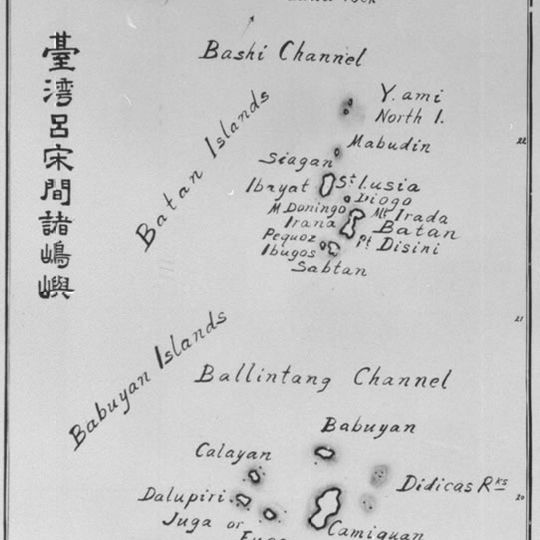 臺灣呂宋間諸嶋嶼
Bashi Channel
Batan Islands
Y.ami
North I.
Mabudin
22
Siagan
Ibayat
St Lusia
Diogo
M Domingo
Mt Irada
Irana
Batan
Pequoz
Pt Disini
Ibugos
Sabtan
21
Babuyan Islands
Ballintang Channel
Babuyan
Calayan
Didicas Rks
20
Dalupiri
Juga or
Camiguan